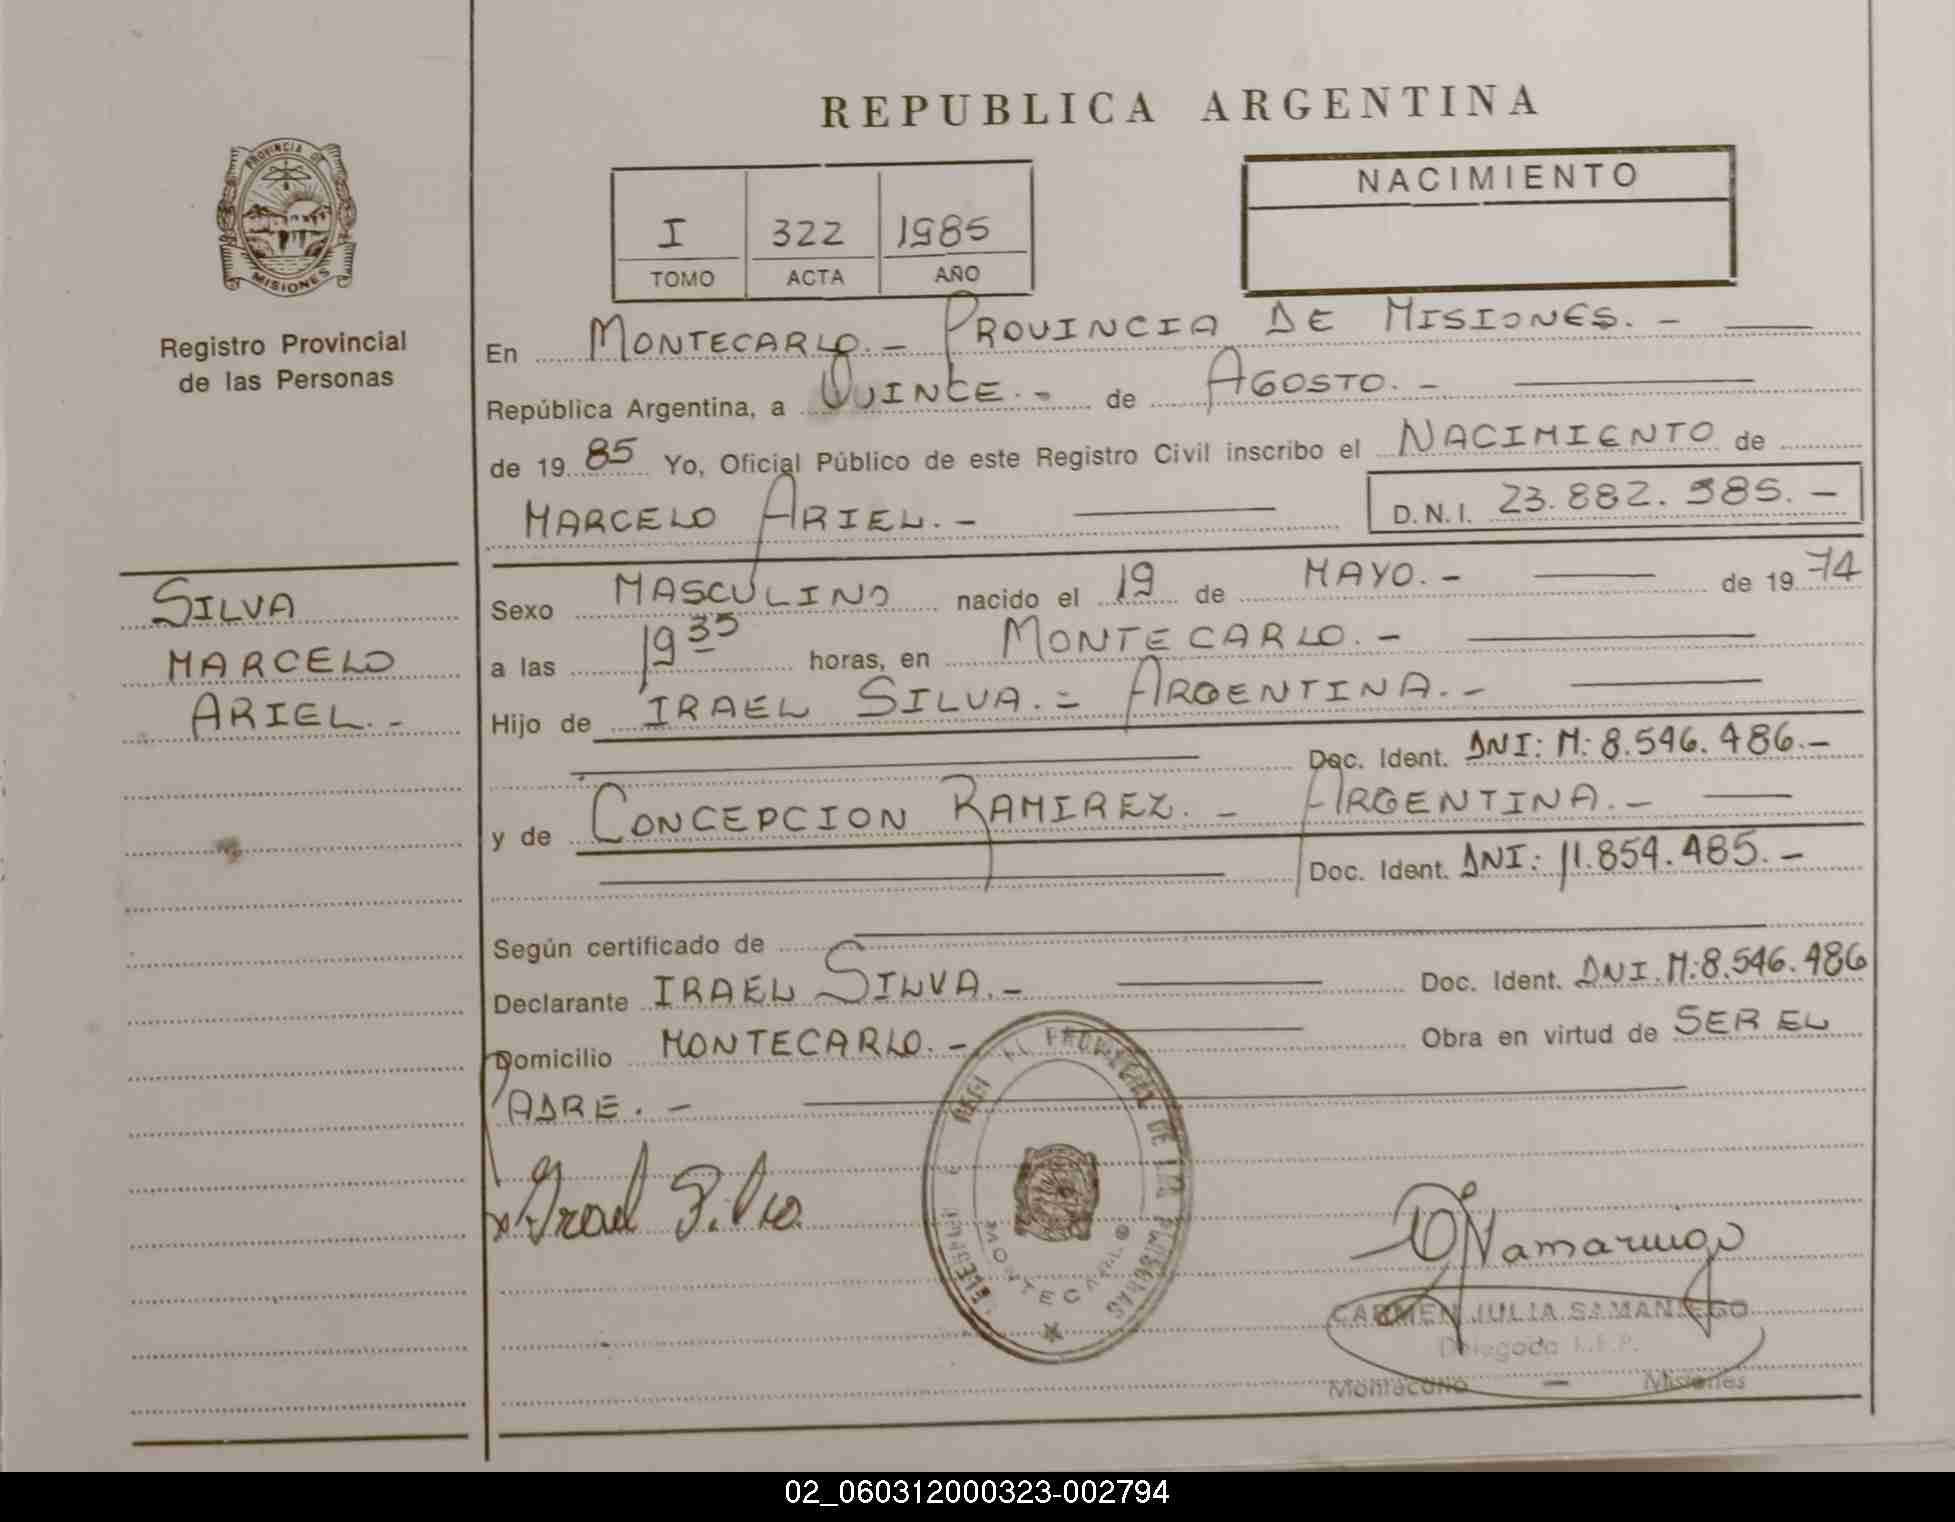 REPUBLICA ARGENTINA
PROVINCIA DE
MISIONES
Registro Provincial
de las Personas
I 322 1985
TOMO ACTA AÑO
NACIMIENTO
En MONTECARLO.- PROVINCIA DE MISIONES.-
República Argentina, a QUINCE.- de AGOSTO.-
de 19 85 Yo, Oficial Público de este Registro Civil inscribo el NACIMIENTO de
MARCELO ARIEL.- D.N.I. 23.882.385.-
SILVA
MARCELO
ARIEL.-
Sexo MASCULINO nacido el 19 de MAYO.- de 19 74
a las 19 35 horas, en MONTECARLO.-
Hijo de IRAEL SILVA.= ARGENTINA.-
Doc. Ident. DNI: M: 8.546.486.-
y de CONCEPCION RAMIREZ.- ARGENTINA.-
Doc. Ident. DNI: 11.854.485.-
Según certificado de
Declarante IRAEL SILVA.- Doc. Ident. DNI.M:8.546.486
Domicilio MONTECARLO.- Obra en virtud de SER EL
PADRE.-
Irael Silva
PROVINCIAL DE LAS PERSONAS
MONTECARLO
CARMEN JULIA SAMANIEGO
Delegada
Montecarlo - Misiones
02_060312000323-002794